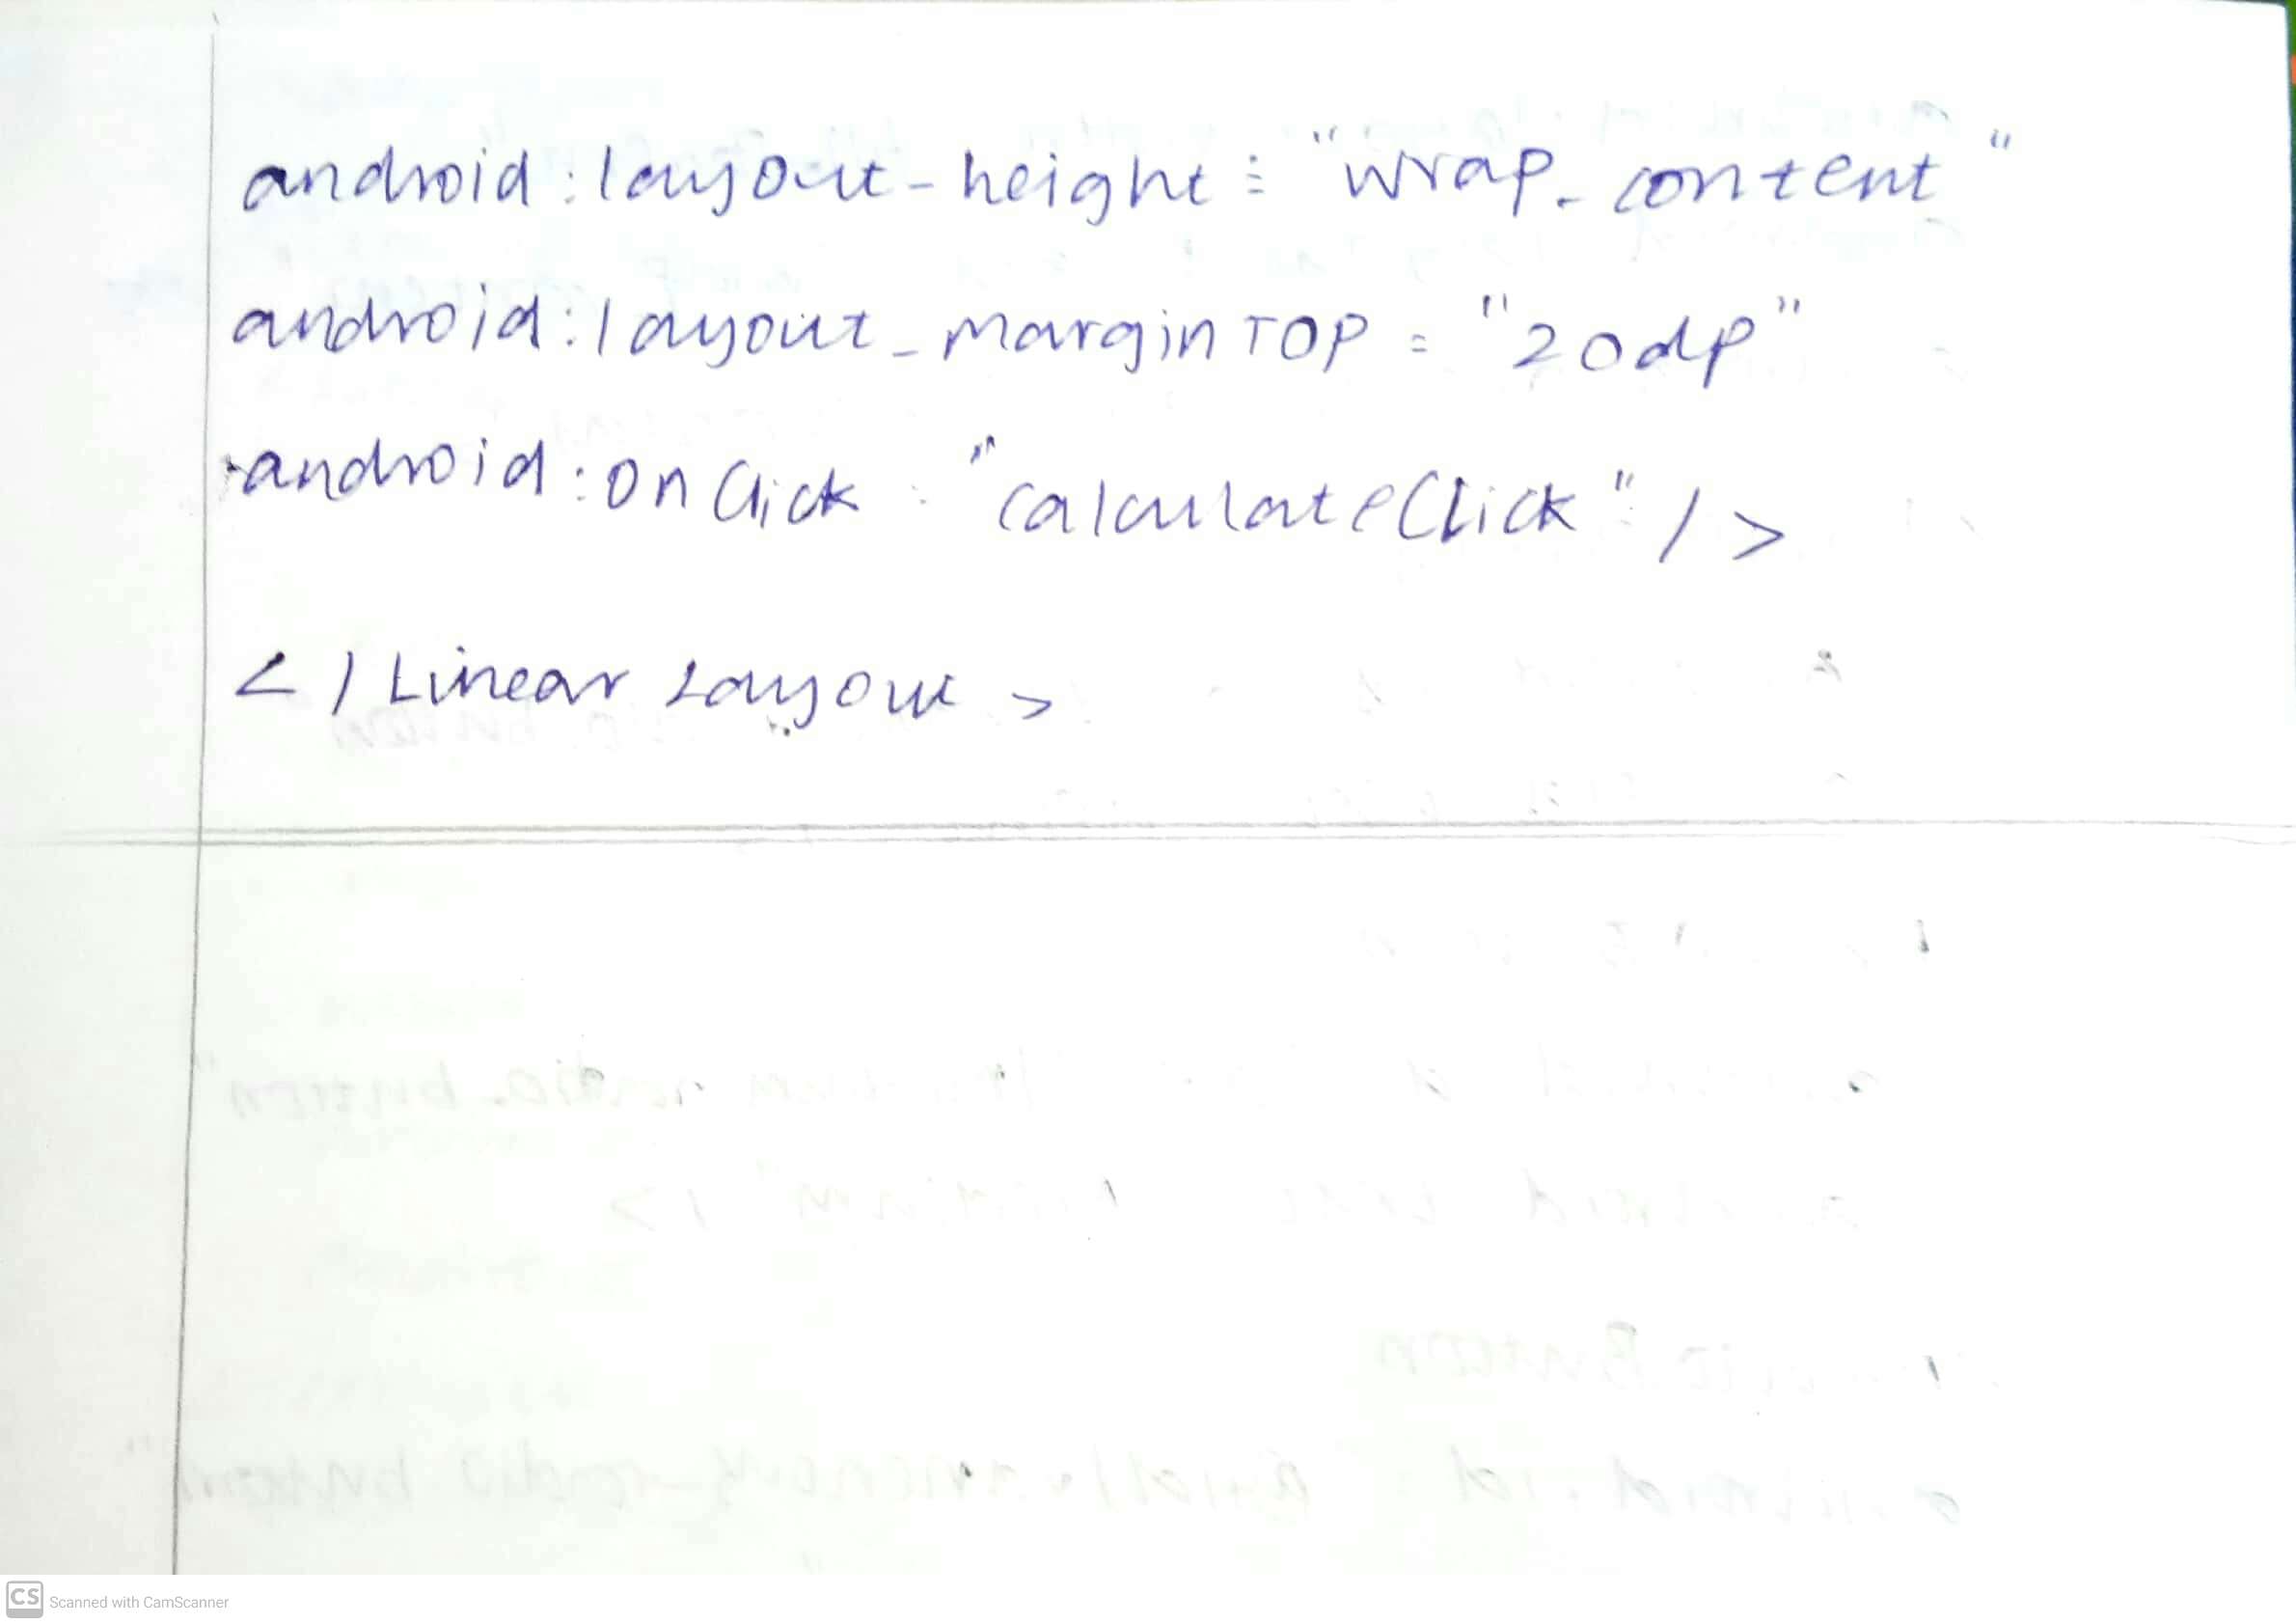 android:layout-height = "wrap_content"
android:layout_marginTOP = "20dp"
android:onClick = "calculateClick" />
</Linear Layout>
CS Scanned with CamScanner